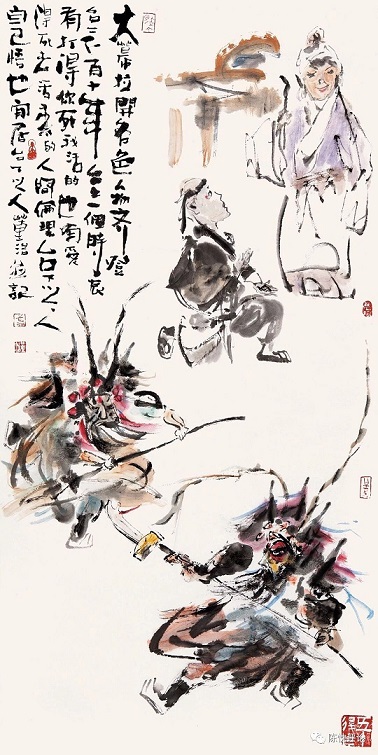 大幕拉開各色人物齊登
台百十年台上一個時辰
有打得你死我活的也有愛
得死去活来的人間倫理台下之人
自己悟也居台下之人記